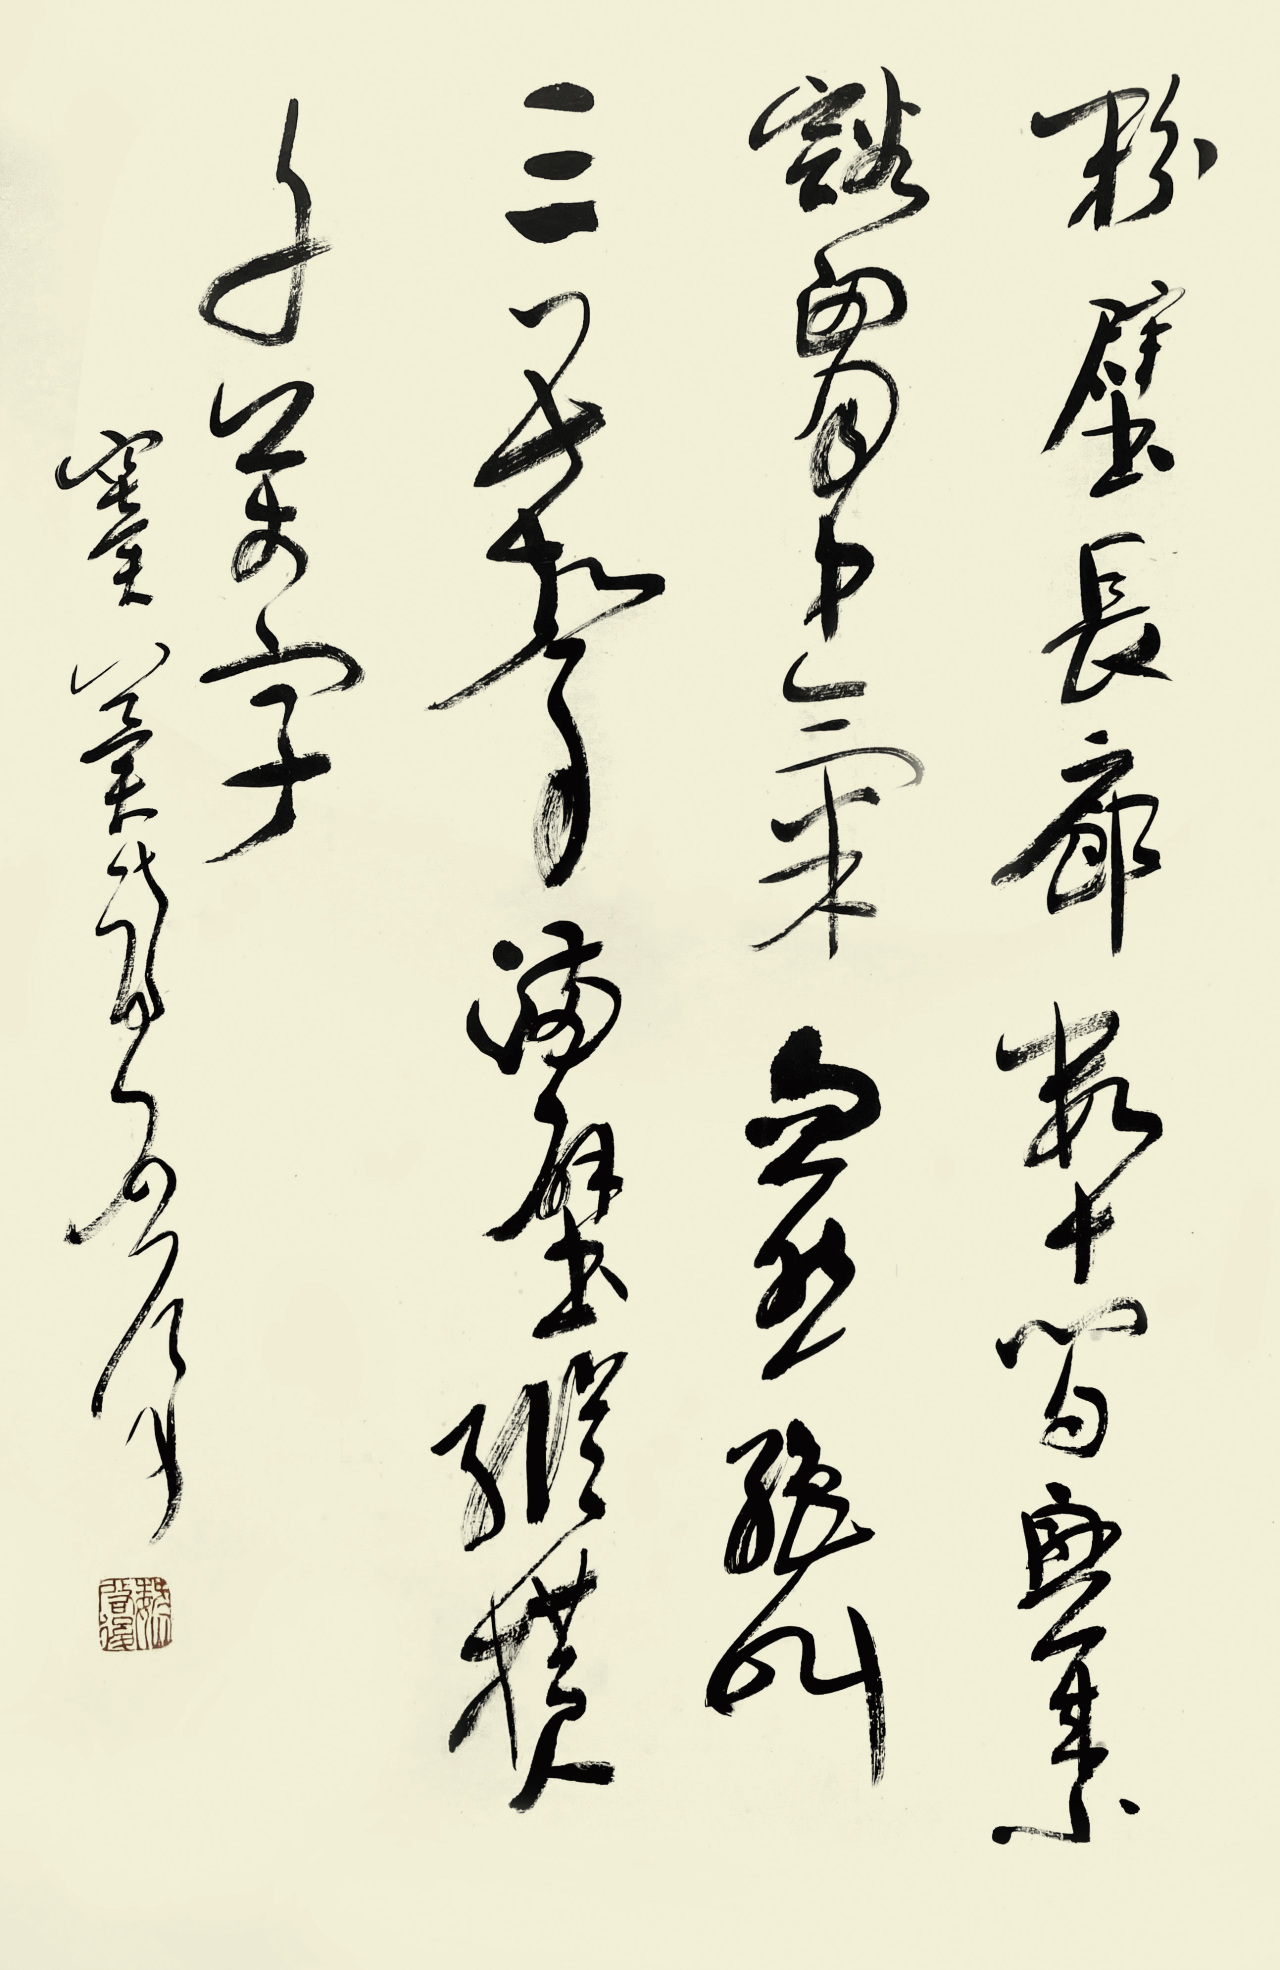 粉壁長廊數十間興來
豁胷中氣忽然絶叫
三五聲滿壁縱橫
千萬字